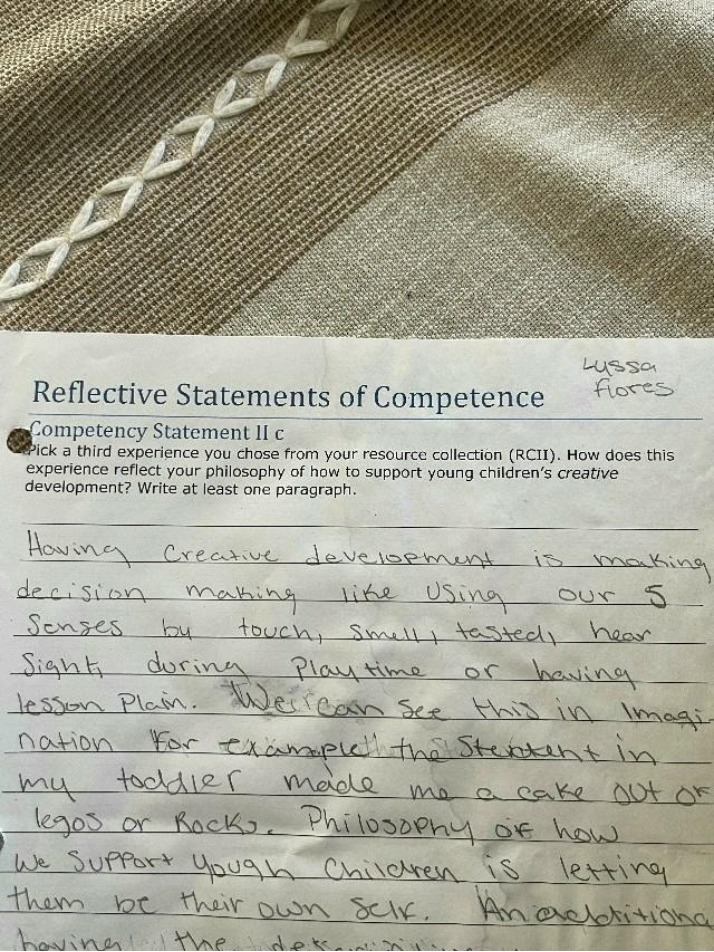 Lyssa
flores
Reflective Statements of Competence
Competency Statement II c
Pick a third experience you chose from your resource collection (RCII). How does this
experience reflect your philosophy of how to support young children's creative
development? Write at least one paragraph.
Having Creative development is making
decision making like using our 5
Senses by touch, smell, tasted, hear
Sight, during Playtime or having
lesson Plain. We can see this in Imagi-
nation For example the in
my toddler made me a cake out of
legos or Rocks. Philosophy of how
We Support yough Children is letting
them be their own Self. An
having the